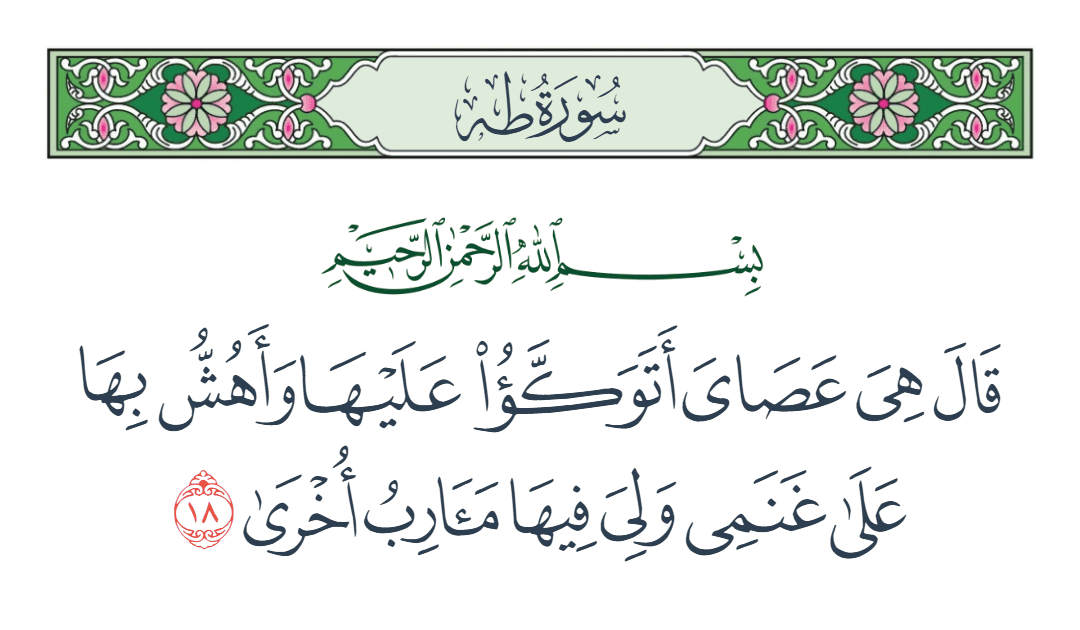 سُورَةُ طه
بِسْمِ ٱللَّهِ ٱلرَّحْمَٰنِ ٱلرَّحِيمِ
قَالَ هِىَ عَصَاىَ أَتَوَكَّؤُا۟ عَلَيْهَا وَأَهُشُّ بِهَا
عَلَىٰ غَنَمِى وَلِىَ فِيهَا مَـَٔارِبُ أُخْرَىٰ ١٨